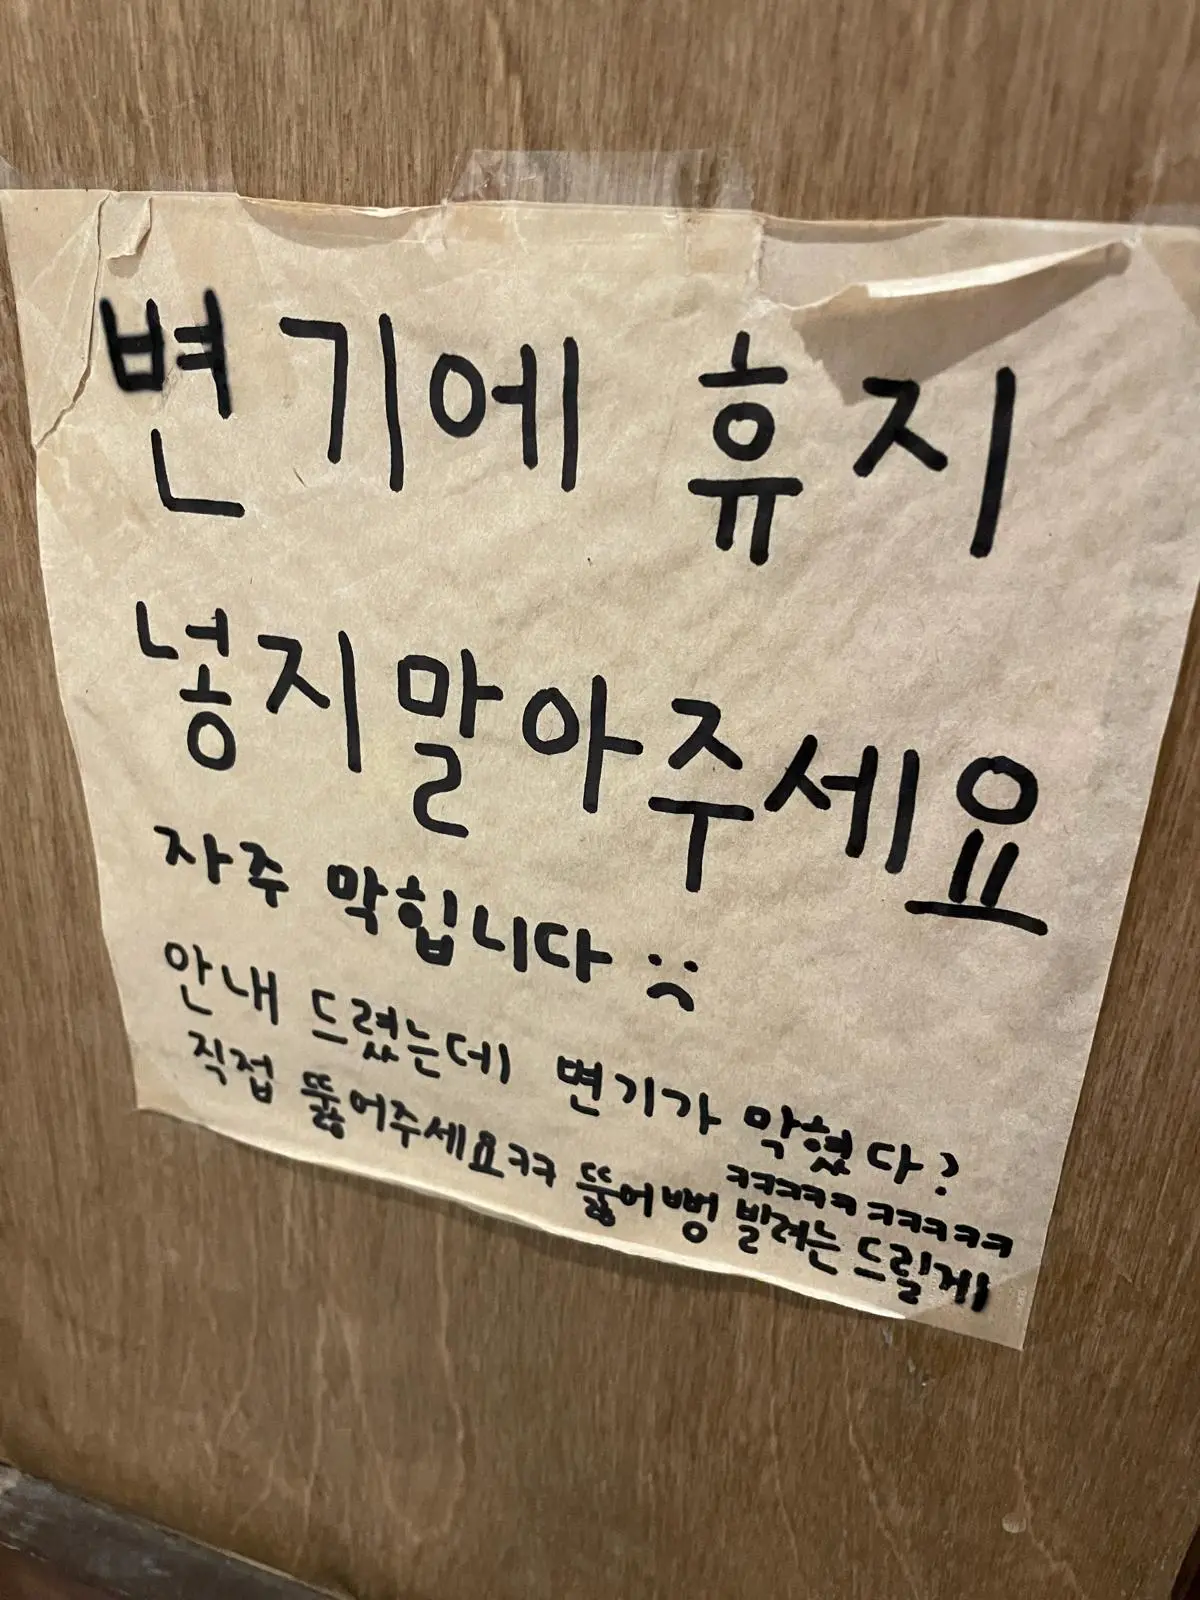 변기에 휴지
넣지말아주세요
자주 막힙니다 :(
안내 드렸는데 변기가 막혔다?
ㅋㅋㅋㅋㅋ ㅋㅋㅋㅋㅋ
직접 뚫어주세요ㅋㅋ 뚫어뻥 빌려는 드릴게